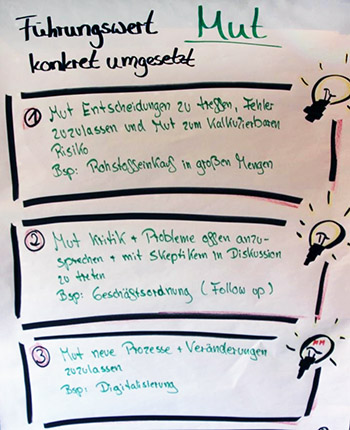 Führungswert Mut
konkret umgesetzt
1 Mut Entscheidungen zu treffen, Fehler
zuzulassen und Mut zum kalkulierbaren
Risiko
Bsp: Rohstoffeinkauf in großen Mengen
2 Mut Kritik + Probleme offen anzu-
sprechen + mit Skeptikern in Diskussion
zu treten
Bsp: Geschäftsordnung (Follow up)
3 Mut neue Prozesse + Veränderungen
zuzulassen
Bsp: Digitalisierung